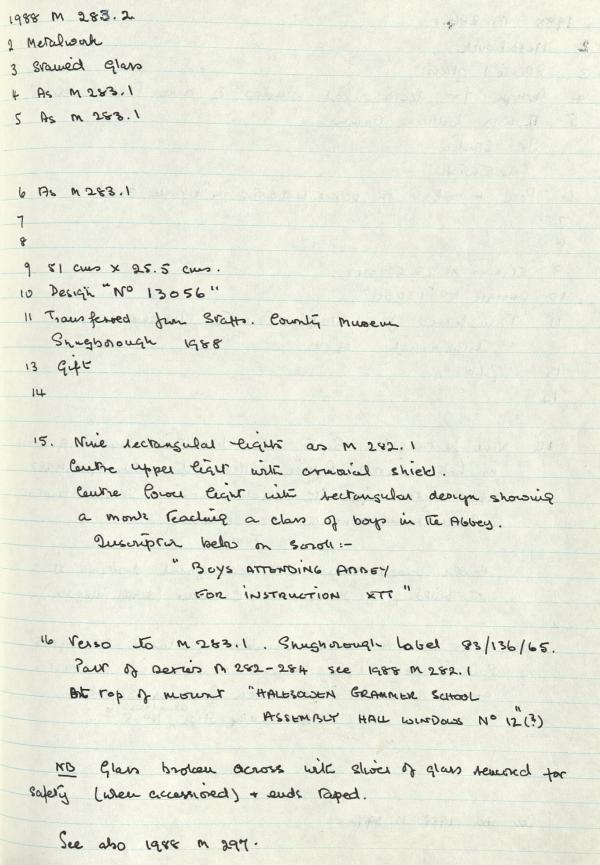 1988 M 283.2
2 Metalwork
3 Stained Glass
4 As M 283.1
5 As M 283.1
6 As M 283.1
7
8
9 51 cms x 25.5 cms.
10 Design "No 13056"
11 Transferred from Staffs. County Museum
Shugborough 1988
13 Gift
14
15. Nine rectangular lights as M 282.1
Centre upper light with armorial shield.
Centre lower light with rectangular design showing
a monk teaching a class of boys in the Abbey.
Inscription below on scroll:-
"BOYS ATTENDING ABBEY
FOR INSTRUCTION XTT"
16 Verso to M 283.1. Shugborough Label 83/136/65.
Part of series M 282-284 see 1988 M 282.1
At top of mount "HALESOWEN GRAMMER SCHOOL
ASSEMBLY HALL WINDOWS No 12"(?)
NB Glass broken across with slices of glass removed for
safety (when accessioned) + ends taped.
See also 1988 M 297.